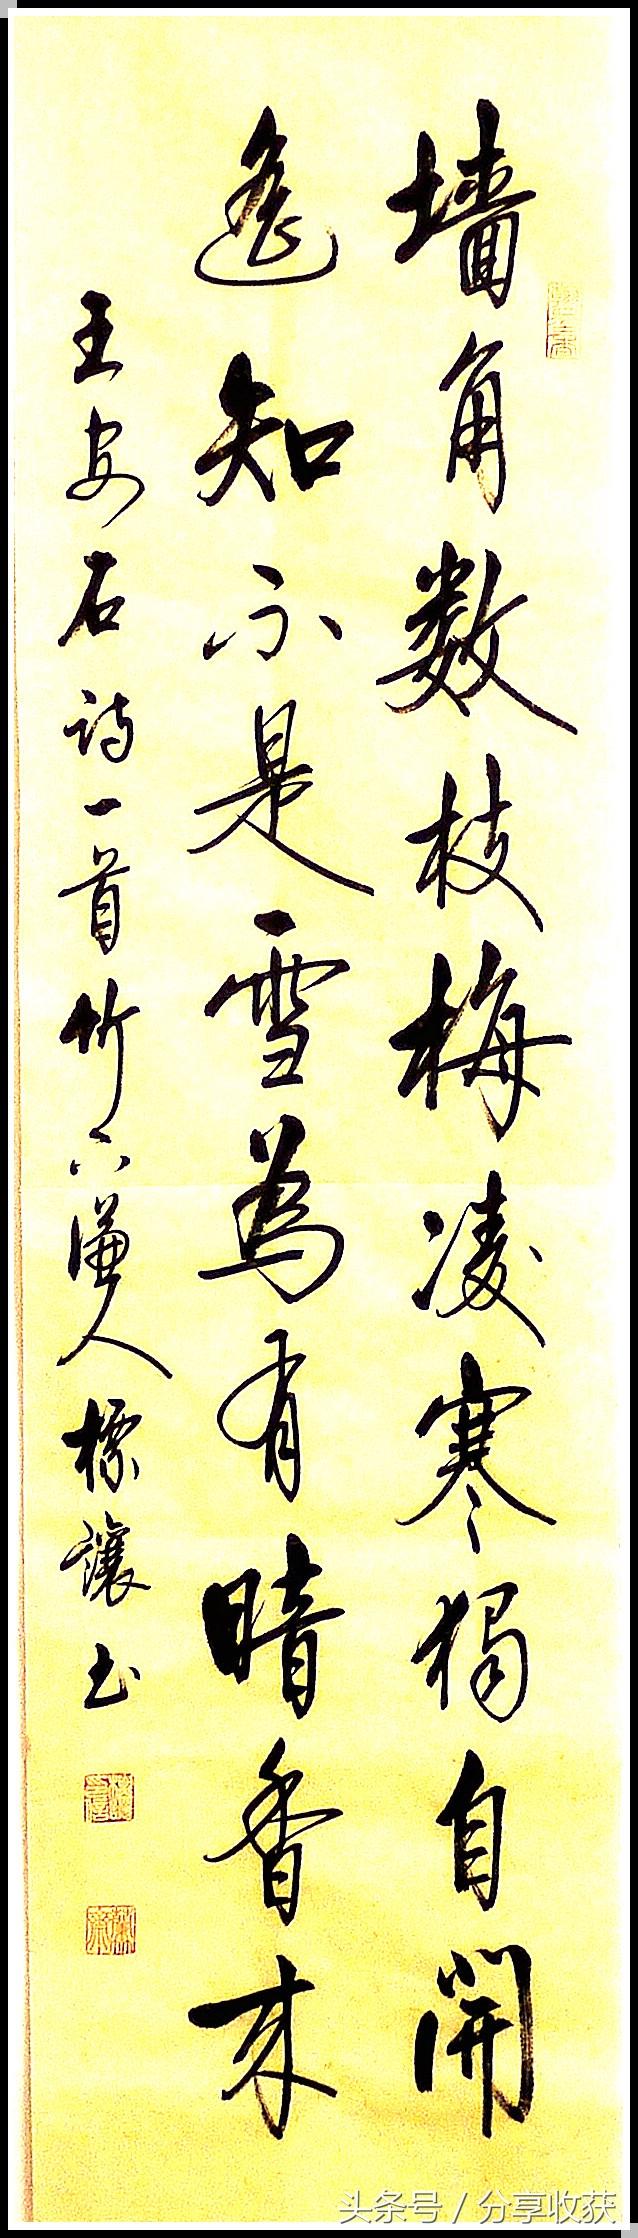 墙角数枝梅凌寒独自開
遙知不是雪為有暗香来
王安石诗一首竹下谦人標讓书
头条号 / 分享收获